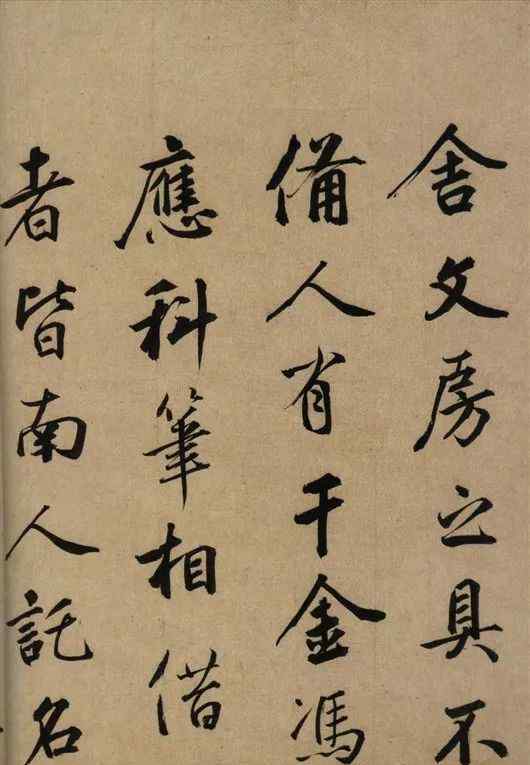 舍文房之具不
備人有千金馮
應科筆相借
者皆南人託名